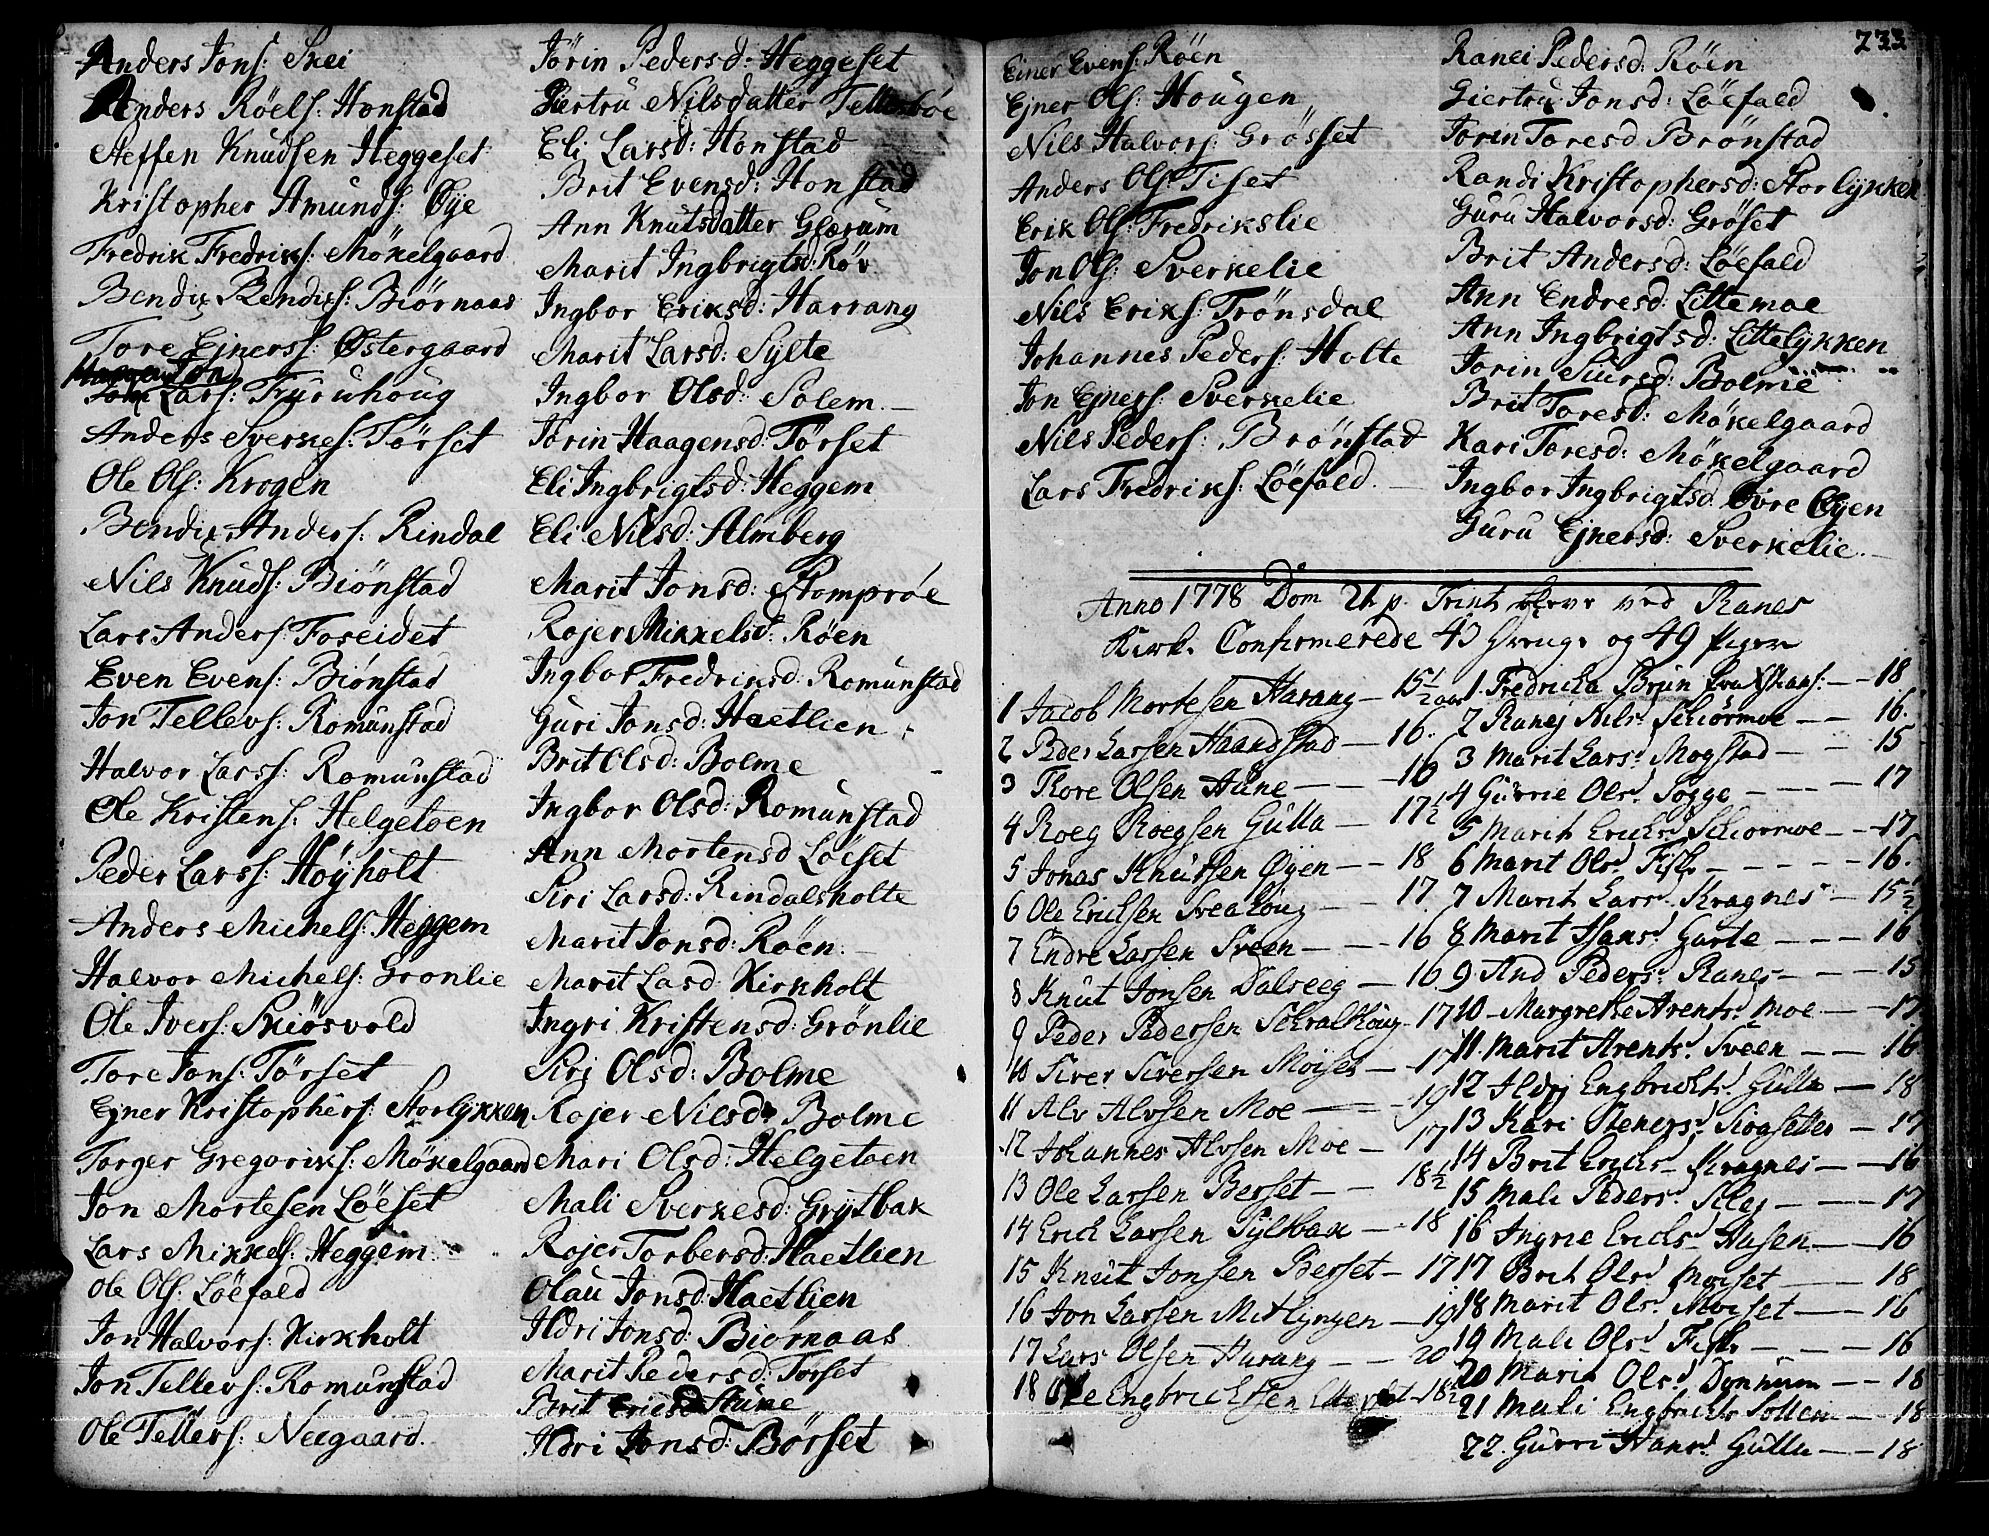 Anders Jons: Skei
Anders Röels: Honstad
Steffen Knudsen Heggeset
Kristopher Amunds: Øye
Fredrik Fredriks: Mökelgaard
Bendix Bendixs: Biørnaas
Tore Ejners: Østergaard
Jon Lars: Furuhoug
Anders Sverkes: Törset
Ole Ols: Krogen
Bendix Anders: Rindal
Nils Knuds: Biönstad
Lars Anders: Foseidet
Even Evens: Biönstad
Jon Tellevs: Romunstad
Halvor Larss: Romunstad
Ole Kristens: Helgetoen
Peder Larss: Höyholt
Anders Michels: Heggem
Halvor Michels: Gronlie
Ole Ivers: Skiösvold
Tore Jons: Törset
Ejner Kristophers: Storlykken
Torger Gregoriks: Mökelgaard
Jon Mortesen Löeset
Lars Mikkels: Heggem
Ole Ols: Löefald
Jon Halvors: Kirkholt
Jon Tellevs: Romunstad
Ole Tellefs: Neegaard
Jörin Pedersd: Heggeset
Giertru Nilsdatter Telleboe
Eli Larsd: Honstad
Brit Evensd: Honstad
Ann Knutsdatter Glærum
Marit Ingbrigtsd: Röv
Ingbor Eriksd: Harrang
Marit Larsd: Sylte
Ingbor Olsd: Solem
Jörin Haagensd: Törset
Eli Ingbrigtsd: Heggem
Eli Nilsd: Almberg
Marit Jonsd: Stomproe
Rojer Mikkelsd: Röen
Ingbor Fredriksd: Romunstad
Guri Jonsd: Haetlien
Brit Olsd: Bolme
Ingbor Olsd: Romunstad
Ann Mortensd Löeset
Siri Larsd: Rindalsholte
Marit Jonsd: Röen
Marit Lasd Kirkholt
Ingri Kristensd: Grönlie
Siri Olsd: Bolme
Rojer Nilsd: Bolme
Mari Olsd: Helgetoen
Mali Sverkesd: Grytbak
Rojer Torbersd: Haetlien
Olau Jonsd: Haetlien
Ildri Jonsd: Biørnaas
Marit Pedersd: Torset
Brit Ericsd Hune
Ildri Jonsd: Börset
233
Einer Evens: Röen
Ejner Ols: Hougen
Nils Halvors: Grösset
Anders Ols: Tiset
Erik Ols: Fredrikslie
Jon Ols: Sverkelie
Nils Eriks: Trönsdal
Johannes Peders: Holte
Jon Ejners: Sverkelie
Nils Peders: Brönstad
Lars Fredriks: Löefald
Ranei Pedersd: Röen
Giertru Jonsd: Löefald
Jorin Toresd Brönstad
Randi Kristophersd: Storlykken
Guru Halvorsd: Gröset
Brit Andersd: Löefald
Ann Endresd: Littemoe
Ann Ingbrigtsd: Littelykken
Jorin Siursd: Bolme
Brit Toresd: Mökelgaard
Kari Toresd: Mökelgaard
Ingbor Ingbrigtsd: Övre Øyen
Guru Ejnersd: Sverkelie
Anno 1778 Dom 21 p. Trinit: bleve ved Ranes
Kirk. Confirmerede 43 Drenge og 49 Piger
1 Jacob Mortesen Harang — 15 1/2 aar
2 Peder Larsen Haandstad — 16
3 Thore Olsen Aune — 16
4 Roeg Roegsen Gulla — 17 1/2
5 Jonas Knutsen Øyen — 18
6 Ole Erichsen Sveahoug — 17
7 Endre Larsen Sveen — 16
8 Knut Jonsen Dalseeg — 16
9 Peder Pedersen Schralhoug — 17
10 Siver Siversen Moiset — 17
11 Alv Alvsen Moe — 19
12 Johannes Alvsen Moe — 17
13 Ole Larsen Berset — 18 1/2
14 Erich Larsen Syltbak — 18
15 Knut Jonsen Berset — 17
16 Jon Larsen Mitlyngen — 19
17 Lars Olsen Harang — 20
18 Ole Engbrichtsen — 18 1/2
1. Fredricka Brun — 18
2 Ranej Nilsd. Schiörmoe — 16
3 Marit Larsd. Mogstad — 15
4 Gurrie Olsd. Sogge — 17
5 Marit Erichsd. Schiormoe — 17
6 Marit Olsd. Fiske — 16.
7 Marit Larsd. Kragnes — 15 1/2
8 Marit Hansd. Garte — 16
9. And Pedersd. Ranes — 15
10 Margrethe Arentsd. Moe — 17
11. Marit Arentsd. Sveen — 16
12 Ildrj Engbrichtsd. Gulla — 18
13 Kari Stenersd. Skogsetter — 17
14 Brit Erichsd. Kragnes — 16
15 Mali Pedersd. Schey — 17
16 Ingrie Erichsd. Husen — 16
17 Brit Olsd. Moiset — 18
18 Marit Olsd. Moiset — 16
19 Mali Olsd. Fiske — 16
20 Maria Olsd. Dønnum — 18
21 Mali Engbrichtsd. Sollem — 18
22. Gurri Hansd. Gulla — 18